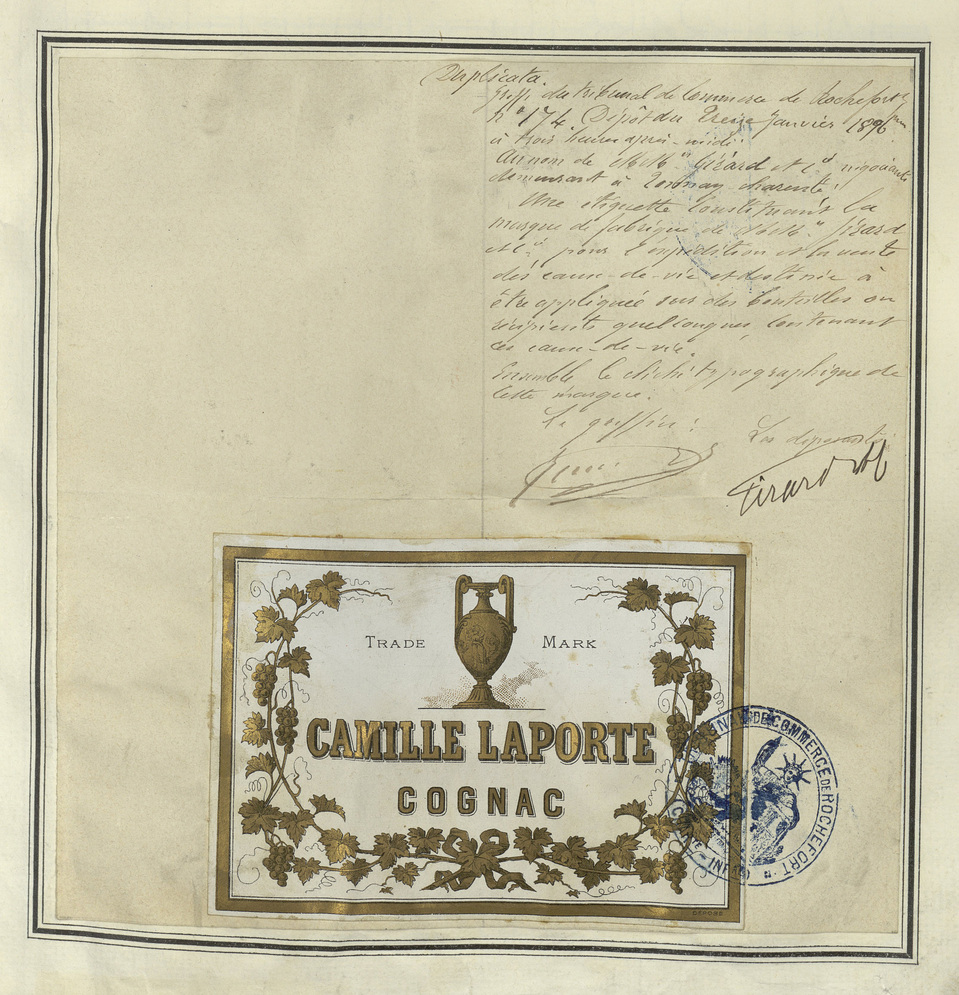 Duplicata.
Greffe du tribunal de Commerce de Rochefort s/m
N° 174 Dépôt du Treize Janvier 1896
à trois heures après-midi
Au nom de MM.rs Girard et Cie négociants
demeurant à Tonnay-charente:
Une étiquette Constituant la
marque de fabrique de MM.rs Girard
et Cie pour l'expédition et la vente
des eaux-de-vie et destinée à
être appliquée sur des bouteilles ou
récipients quelconques, Contenant
ces eaux-de-vie
Ensemble le cliché typographique de
cette marque.
Le greffier: Les déposants:
Girard
TRADE MARK
CAMILLE LAPORTE
COGNAC
DÉPOSÉ
TRIBUNAL DE COMMERCE DE ROCHEFORT